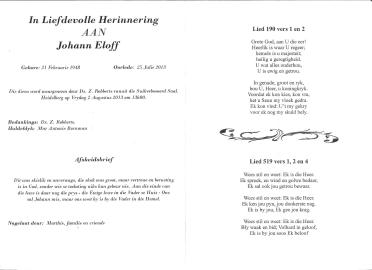 In Liefdevolle Herinnering
AAN
Johann Eloff
Gebore: 21 Februarie 1948 Oorlede: 25 Julie 2013
Die diens word waargeneem deur Ds. Z. Robberts vanuit die Suikerbosrand Saal.
Heidelberg op Vrydag 2 Augustus 2013 om 14h00.
Bedankings: Ds. Z. Robberts.
Huldeblyk: Mnr Antonie Barnman
Afskeidsbrief
in God, sonder
is die lees is daar nog die prys - die Ewige lewe in die Vader se Huis - Ons
sal Johann mis, maar ons weet hy is by die Vader in die Hemel.
Nagelaat deur: Marthie, familie en vriende
Lied 190 vers 1 en 2
Grote God, aan U die eer!
Heerlik is waar U regeer;
hemele is u majesteit;
heilig u geregtigheid.
U wat alles onderhou,
U is ewig en getrou.
In genade, groot en ryk,
hou U, Heer, u koningkryk.
Voordat ek kon kies, kon vra,
het u Seun my vloek gedra.
Ek kon vind: U't my gekry
voor ek nog my skuld bely.
Lied 519 vers 1, 2 en 4
Wees stil en weet: Ek is die Heer.
Ek spreek, en wind en golwe bedaar.
Ek sal ook jou getrou bewaar.
Wees stil en weet: Ek is die Heer.
Ek ken jou pyn, jou donkerste nag.
Ek is by jou, Ek gee jou krag.
Wees stil en weet: Ek is die Heer.
Bly waak en bid; Volhard in geloof,
Ek is by jou soos Ek beloof